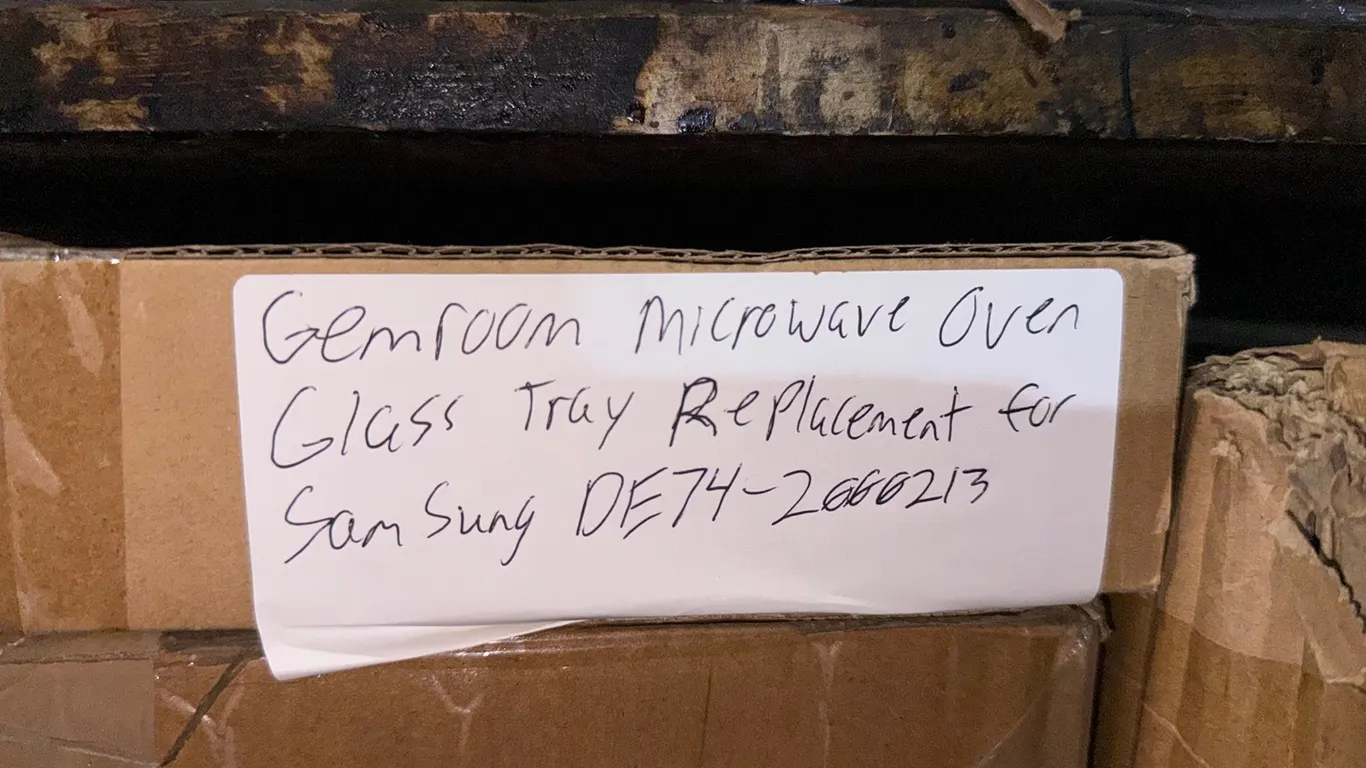 Gemroom Microwave Oven
Glass Tray Replacement for
Samsung DE74-2000213